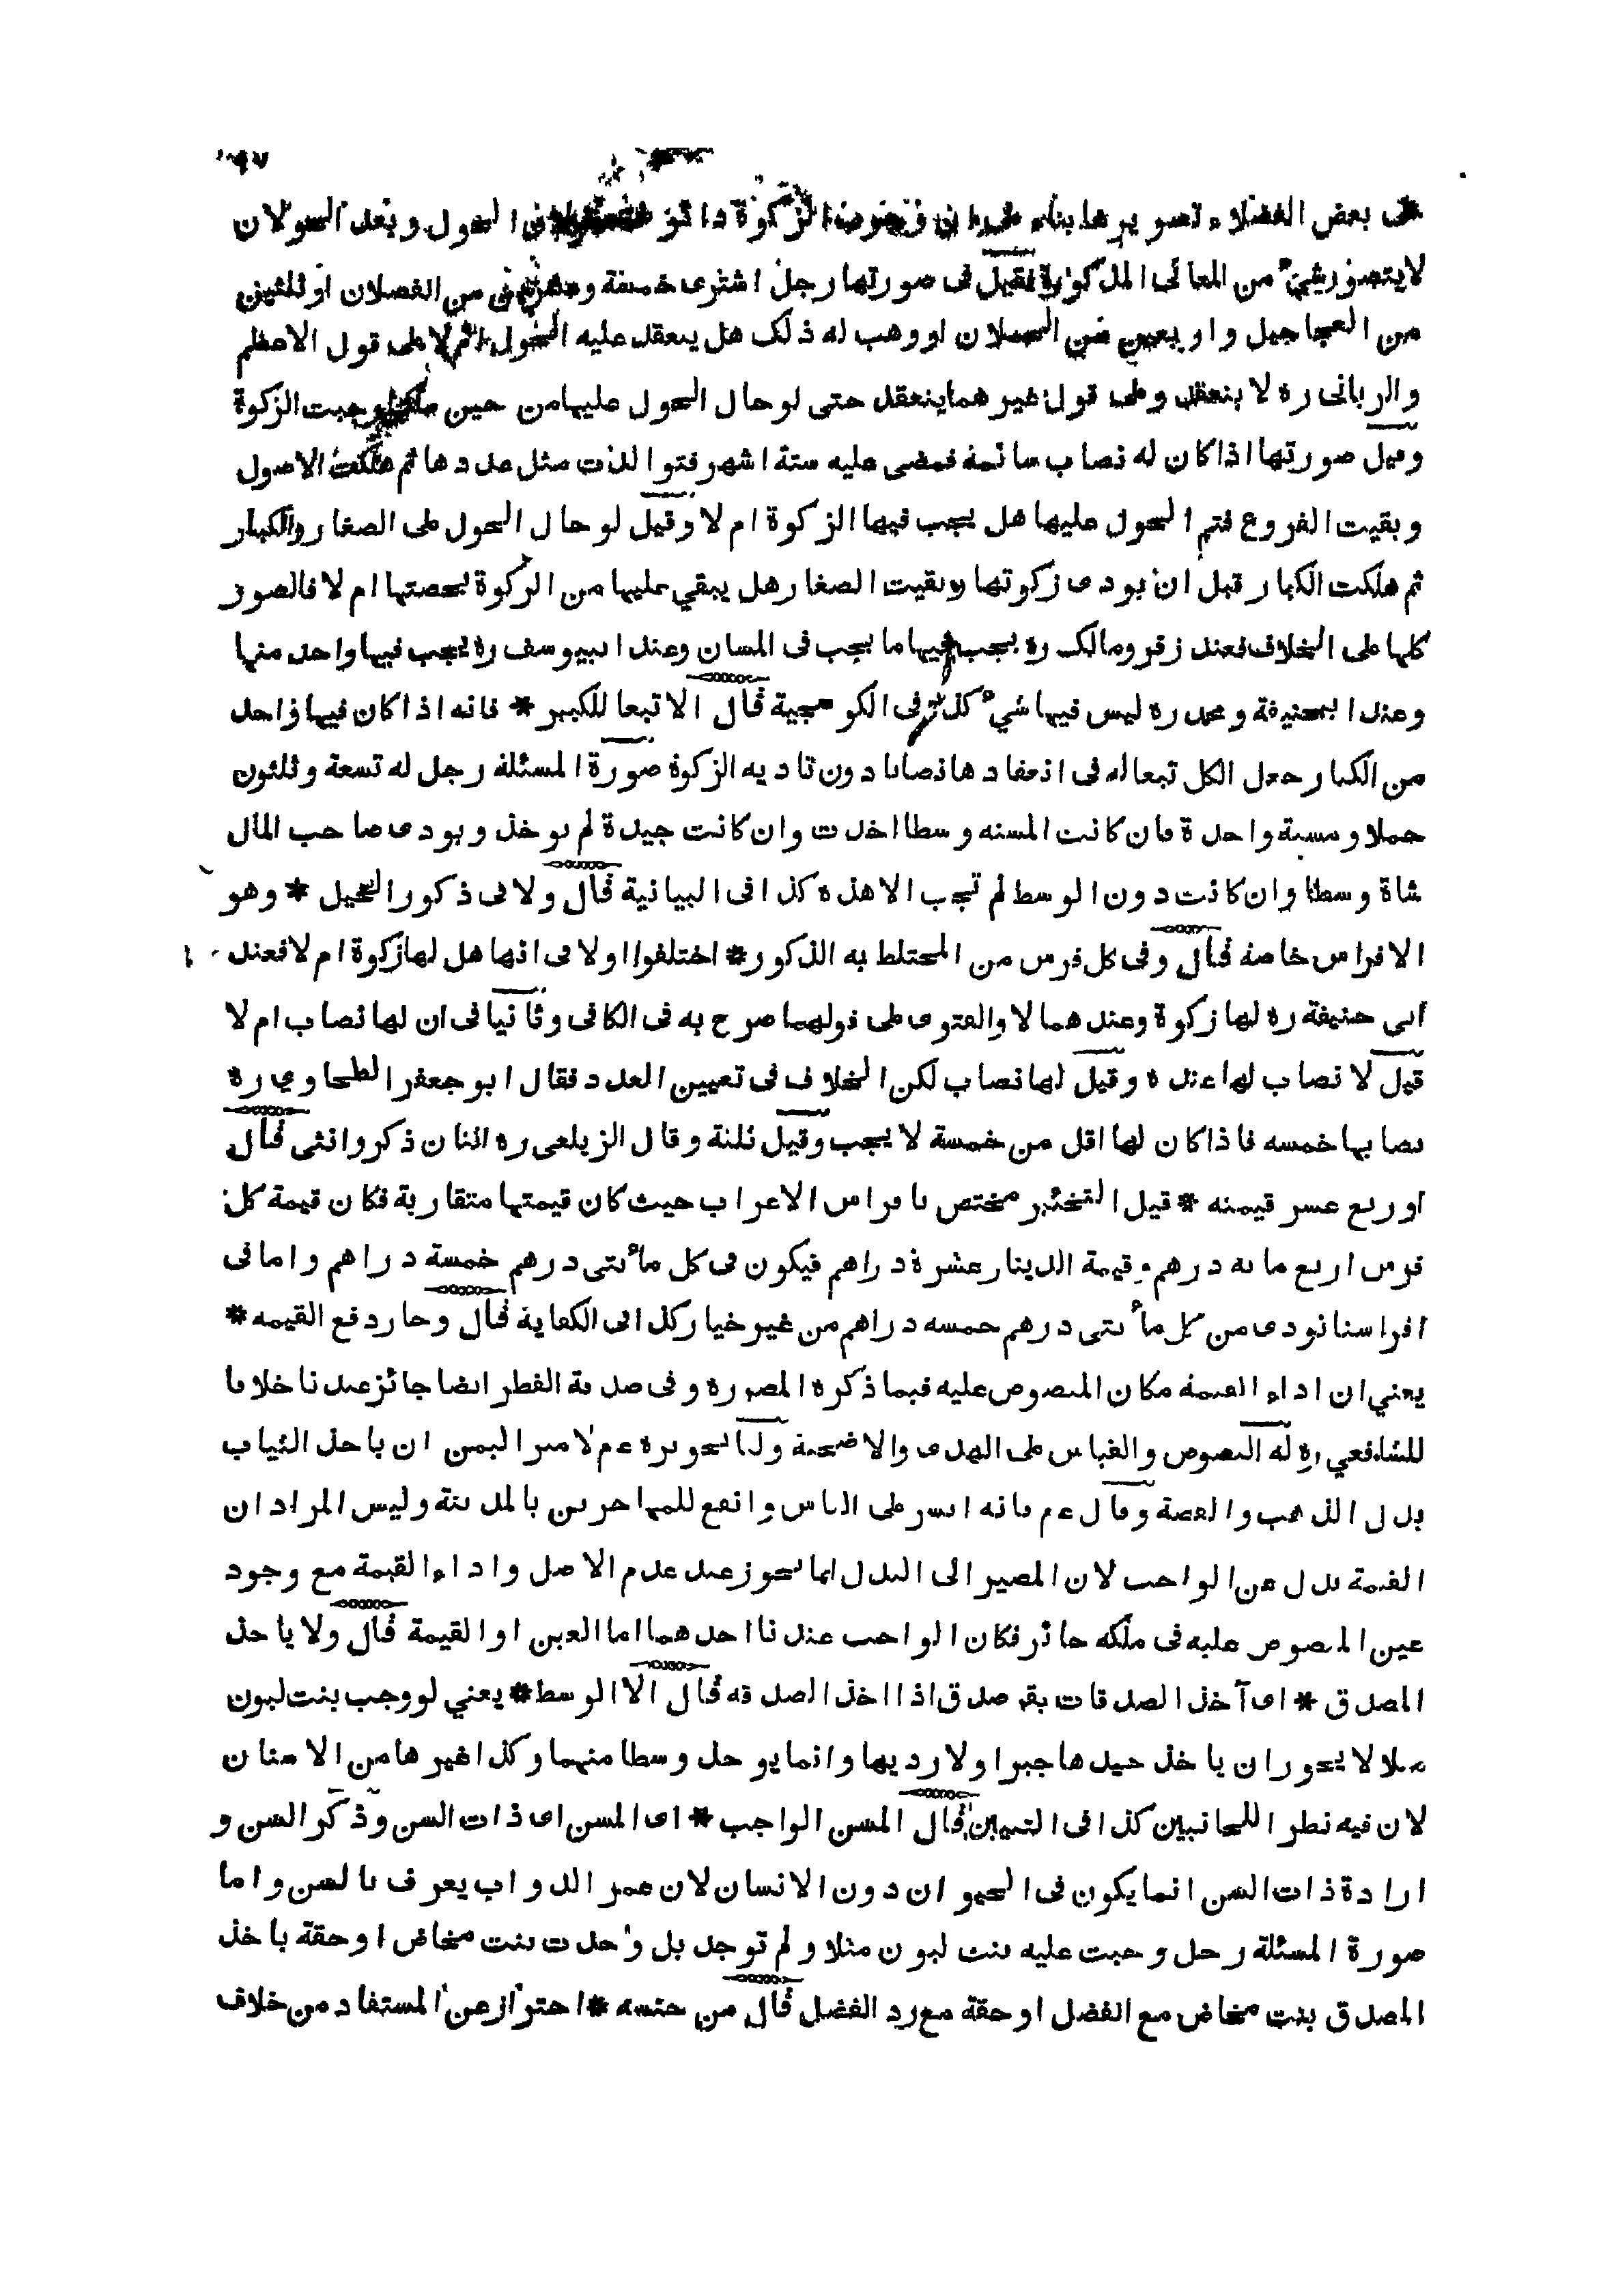 بعض الفضلاء تصويرها بناء على ان الزكوة الحول وبعد الحولان
لا يتصور شيء من المعانى المذكورة فقيل فى صورتها رجل اشترى خمسة وعشرين من الفصلان او ثلثين
من العجاجيل واو بعين من الحملان او وهب له ذلك هل ينعقد عليه الحول ام لا على قول الاعظم
والربانى ره لا ينعقد وعلى قول غيرهما ينعقد حتى لو حال الحول عليها من حين ملكها وجبت الزكوة
وقيل صورتها اذا كان له نصاب سائمة فمضى عليه ستة اشهر فتوالدت مثل عددها ثم هلكت الاصول
وبقيت الفروع فتم الحول عليها هل يجب فيها الزكوة ام لا وقيل لو حال الحول على الصغار والكبار
ثم هلكت الكبار قبل ان يودى زكوتها وبقيت الصغار هل يبقي عليها من الزكوة بحصتها ام لا فالصور
كلها على الخلاف فعند زفر ومالك ره يجب فيها ما يجب فى المسان وعند ابيوسف ره يجب فيها واحد منها
وعند ابيحنيفة ومحمد ره ليس فيها شيء كذا فى الكو سجية قال الا تبعا للكبير * فانه اذا كان فيها واحد
من الكبار جعل الكل تبعا له فى انعقادها نصابا دون تاديه الزكوة صورة المسئلة رجل له تسعة وثلثون
حملا ومسنة واحدة فان كانت المسنه وسطا اخذت وان كانت جيدة لم يوخذ ويودى صاحب المال
شاة وسطا وان كانت دون الوسط لم تجب الا هذه كذا فى البيانية قال ولا فى ذكور الخيل * وهو
الافراس خاصة قال وفى كل فرس من المختلط به الذكور * اختلفوا اولا فى انها هل لها زكوة ام لا فعند
ابى حنيفة ره لها زكوة وعندهما لا والفتوى على قولهما صرح به فى الكافى وثانيا فى ان لها نصاب ام لا
قيل لا نصاب لها عنده وقيل لها نصاب لكن الخلاف فى تعيين العدد فقال ابو جعفر الطحاوي ره
نصابها خمسه فاذا كان لها اقل من خمسة لا يجب وقيل ثلثة وقال الزيلعى ره اثنان ذكر وانثى قال
او ربع عشر قيمته * قيل التخئير مختص بافراس الاعراب حيث كان قيمتها متقاربة فكان قيمة كل
فرس اربع مائه درهم وقيمة الدينار عشرة دراهم فيكون فى كل مأتى درهم خمسة دراهم واما فى
افراسنا نودى من كل مأتى درهم خمسه دراهم من غير خيار كذا فى الكفاية قال وجاز دفع القيمه *
يعني ان اداء القيمة مكان المنصوص عليه فيما ذكره المص ره وفى صدقة الفطر ايضا جائز عندنا خلافا
للشافعي ره له النصوص والقياس على الهدى والاضحية ولنا تجويزه عم لامير اليمن ان ياخذ الثياب
بدل الذهب والفضة وقال عم بانه ايسر على الناس وانفع للمهاجرين بالمدينة وليس المراد ان
القيمة بدل عن الواجب لان المصير الى البدل انما يجوز عند عدم الاصل واداء القيمة مع وجود
عين المنصوص عليه فى ملكه جائز فكان الواجب عندنا احدهما اما العين او القيمة قال ولا ياخذ
المصدق * اى آخذ الصدقات يقم صدق اذا اخذ الصدقه قال الا الوسط * يعني لو وجب بنت لبون
مثلا لا يجوز ان ياخذ جيدها جبرا ولا رديها وانما يوخذ وسطا منهما وكذا غيرها من الاسنان
لان فيه نظر اللجانبين كذا فى التبيين قال المسن الواجب * اى المسن اى ذات السن وذكر السن و
ارادة ذات السن انما يكون فى الحيوان دون الانسان لان عمر الدواب يعرف بالسن واما
صورة المسئلة رجل وجبت عليه بنت لبون مثلا ولم توجد بل وجدت بنت مخاض او حقة ياخذ
المصدق بنت مخاض مع الفضل او حقة مع رد الفضل قال من جنسه * احتراز عن المستفاد من خلاف